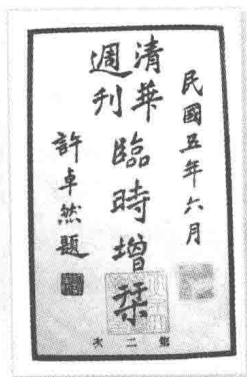 民國五年六月
清華
週刊
臨時增栞
許卓然題
第二次